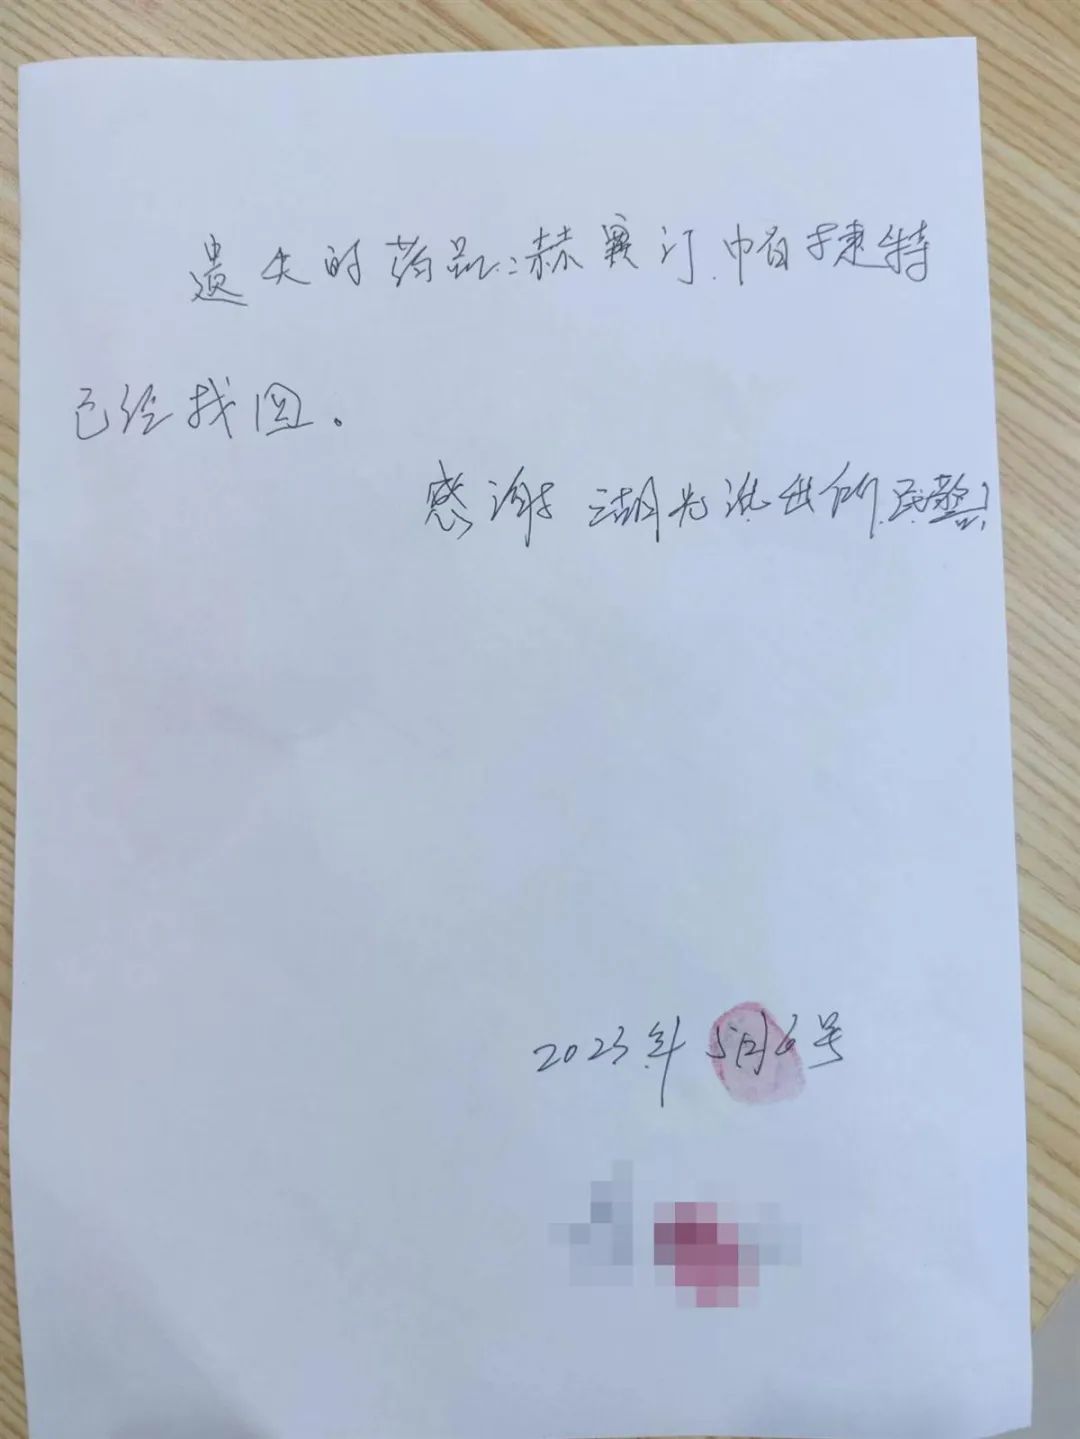 遗失的药品:赫赛汀.帕捷特
已经找回。
感谢湖光派出所.民警!
2023年5月6号